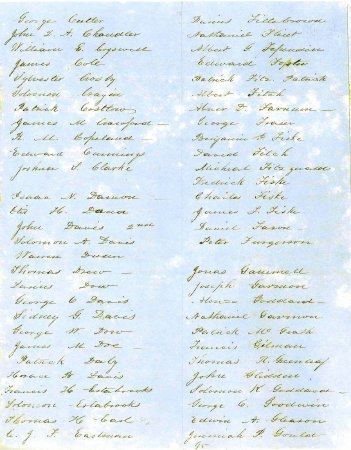 George Cutler
John Q. A. Chandler
William E. Cogswell
James Cole
Sylvester Crosby
Solomon
Patrick Costlow
James M Crawford
R. M. Copeland
Edward Cummings
Joshua S. Clarke
Isaac N. Damon
Eli H. David
John Davis 2nd
Solomon A. Davis
Warren
Thomas Drew
Daniel Dow
George C Davis
Sidney G. Davis
George W Dow
James M Doe
Patrick Daly
Horace W Davis
Francis H Estabrooks
Solomon Estabrooks
Thomas H. Earl
C. J. F. Eastman
Darius Fillebrown
Nathaniel Fleet
Albert G
Edward Foster
Patrick Fitz Patrick
Albert Fitch
Abner D. Farnum
George Fraser
Benjamin G Fiske
David Fitch
Michael Fitz gerald
Fredrick Fiske
Charles Fiske
James F. Fiske
Daniel
Peter Furgerson
Jonas Gammell
Joseph Garrison
Alonzo Goddard
Nathaniel Garrison
Patrick Mc Grath
Francis Gilman
Thomas H. Greenleaf
John Glidden
Solomon K Goddard
George C. Goodwin
Edwin A. Gleason
Jeremiah F. Gould